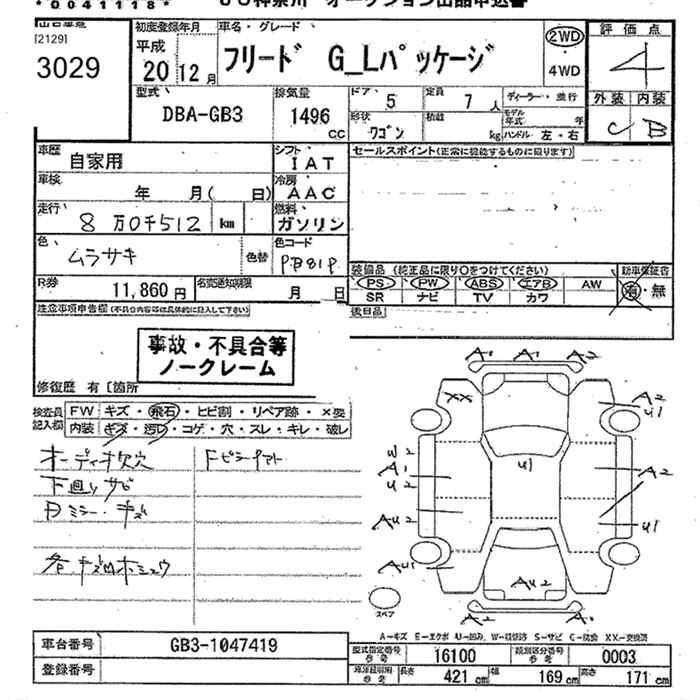 *0041118*
[2129]
3029
初度登録年月
平成
20 12月
車名・グレード
フリード G_Lパッケージ
2WD
4WD
評価点
4
外装 内装
C B
型式
DBA-GB3
排気量
1496
CC
ドア 5
定員 7 人
ディーラー・並行
形状
ワゴン
積載
kg
モデル年式
年
ハンドル 左・右
車歴
自家用
シフト
IAT
セールスポイント(正常に機能するものに限ります)
車検
年 月( 日)
冷房
AAC
走行
8万0千512 km
燃料
ガソリン
色
ムラサキ
色替
色コード
PB81P
装備品 (純正品に限り○をつけてください)
新車保証書
PS PW ABS エアB AW
有・無
SR ナビ TV カワ
R券
11,860円
名変通知期限
月 日
後日品
注意事項申告欄(不具合内容等は具体的に記入して下さい)
事故・不具合等
ノークレーム
修復歴 有 [箇所
検査員
記入欄
FW キズ・飛石・ヒビ割・リペア跡・×要
内装 キズ・汚レ・コゲ・穴・スレ・キレ・破レ
オーディオ欠穴
下廻りサビ
ミラー・キズ
A1 A1 A2
XX
A2
U1
W2
A1
U2
U1
A2
AU2
U1
AU1
AU2
スペア
A2
A-キズ E-エクボ U-凹み W-補修跡 S-サビ C-腐食 XX-交換済
車台番号
GB3-1047419
登録番号
型式指定番号
参考
16100
類別区分番号
参考
0003
長さ 421 cm
幅 169 cm
高さ 171 cm